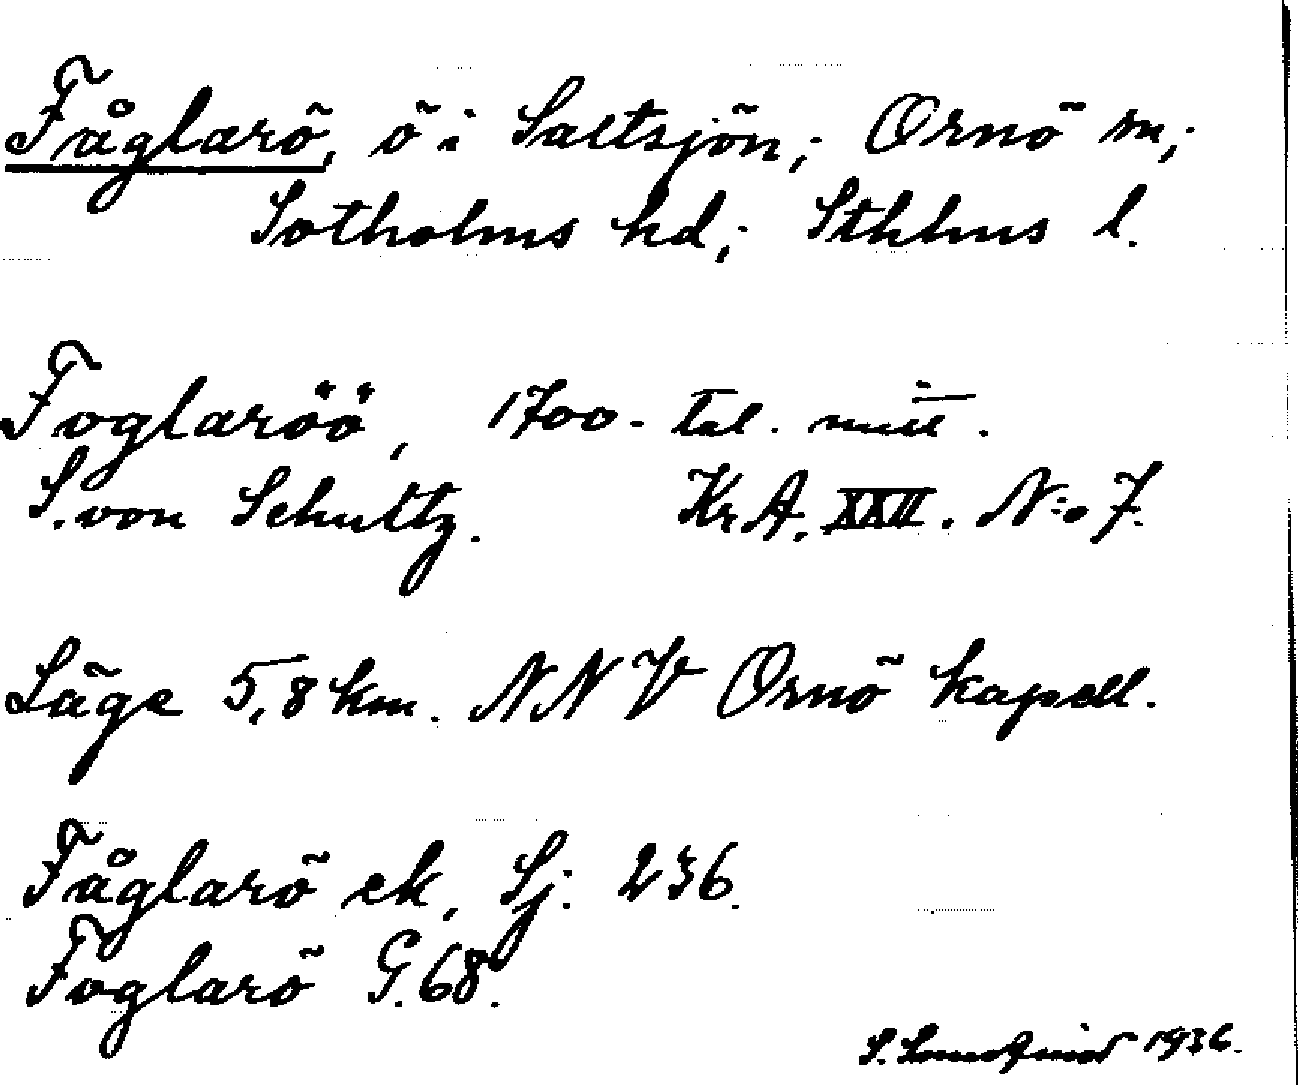 Fåglarö, ö i Saltsjön; Ornö sn;
Sotholms hd; Sthlms l.
Foglaröö, 1700-tal. mitt.
S. von Schultz. Kr.A. XXII. N:o 7.
Läge 5,8 km. NNV Ornö kapell.
Fåglarö ek, Sj. 236.
Foglarö G. 68.
S. 1936.